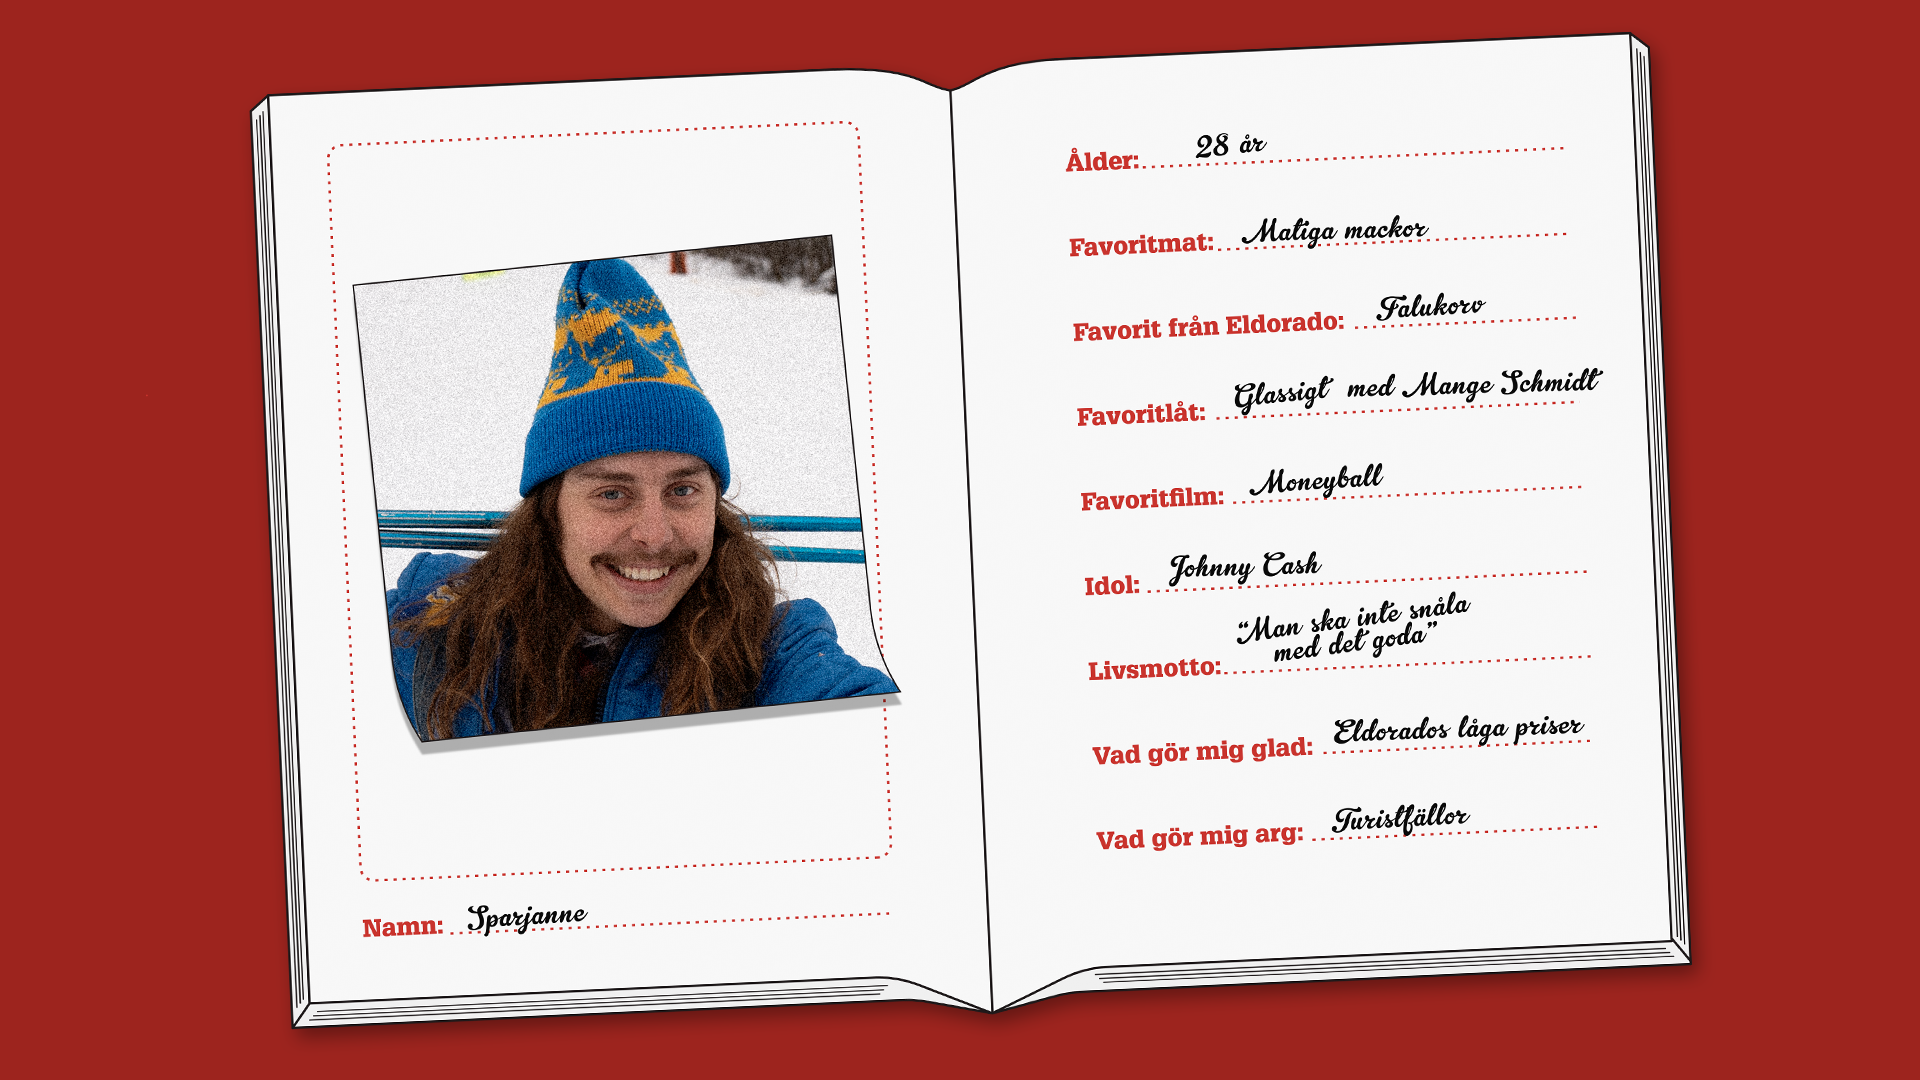 Namn: Sparjanne
Ålder: 28 år
Favoritmat: Matiga mackor
Favorit från Eldorado: Falukorv
Favoritlåt: Glassigt med Mange Schmidt
Favoritfilm: Moneyball
Idol: Johnny Cash
Livsmotto: “Man ska inte snåla
med det goda”
Vad gör mig glad: Eldorados låga priser
Vad gör mig arg: Turistfällor